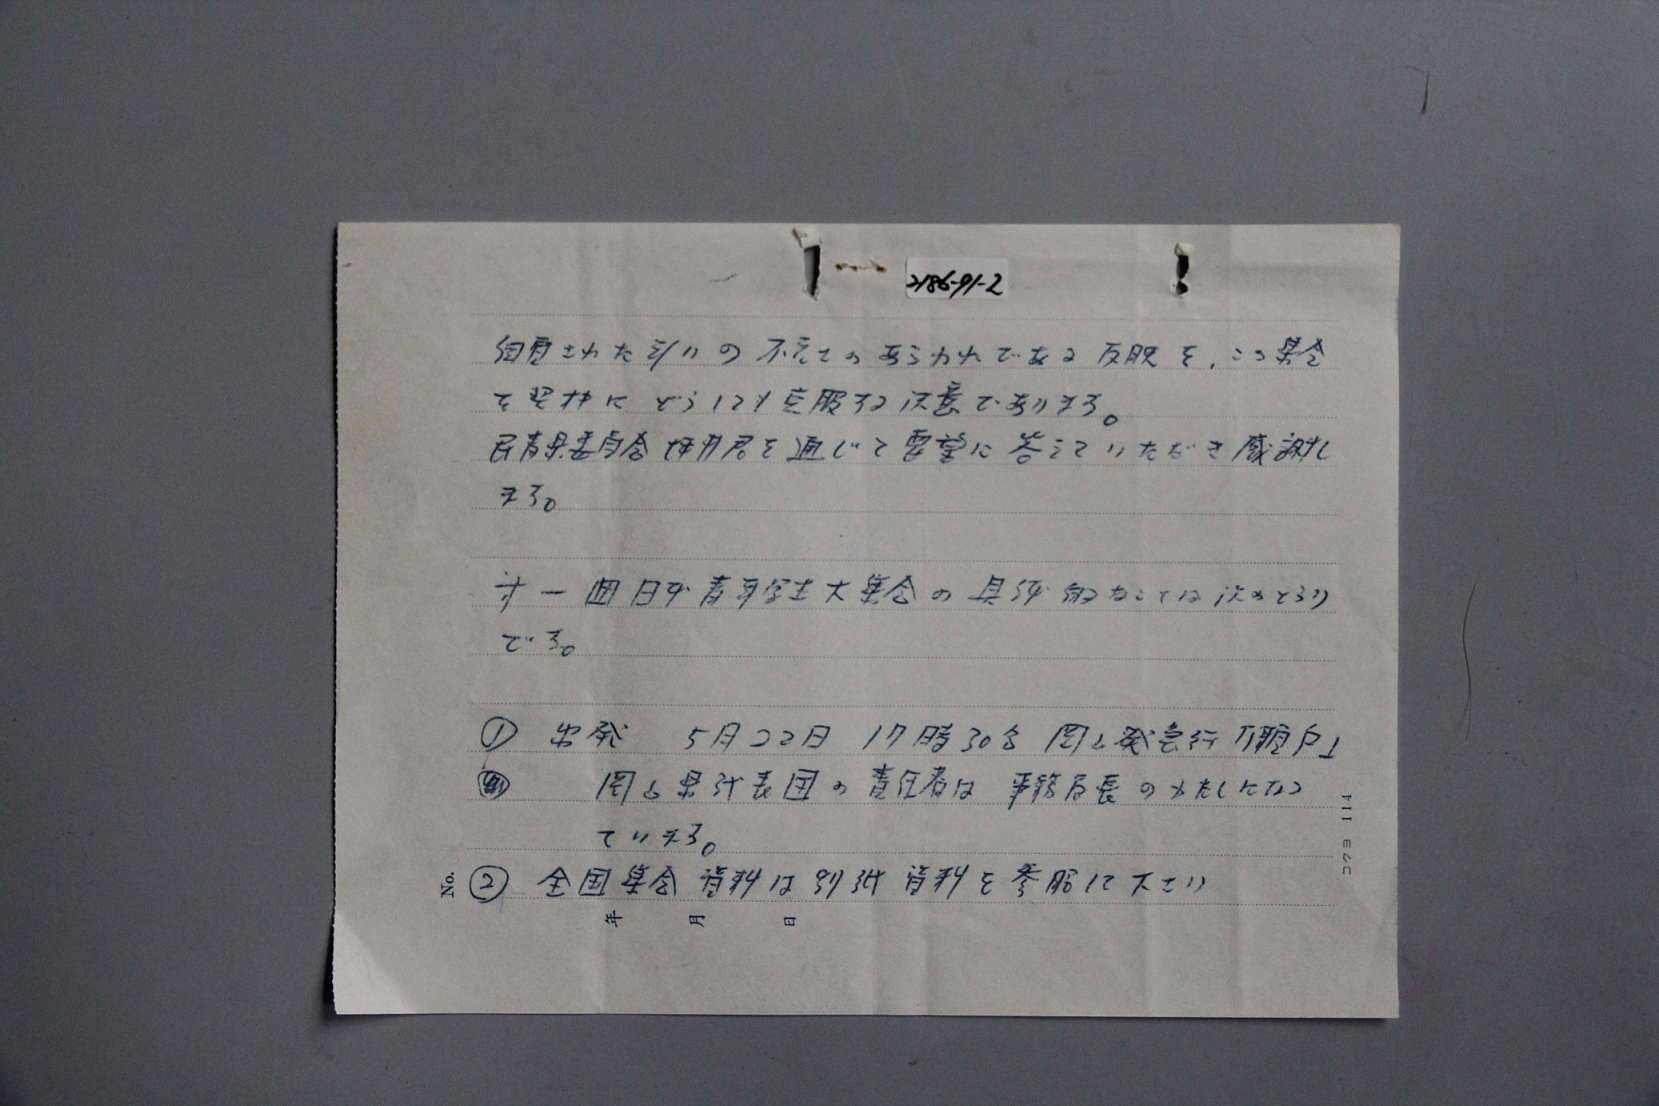 2186-91-2
された の あらわれである を、この集会
を にどうしても克服する決意であります。
民青県委員会 君を通じて要望に答えていただき感謝し
ます。
才一回日本青年学生大集会の具体的なことは次のとうり
です。
① 出発 5月22日 17時30分 岡山発急行「瀬戸」
岡山県代表団の責任者は 事務局長のわたしになっ
ています。
② 全国集会資料は別紙資料を参照して下さい
No.
年 月 日
コクヨ 114